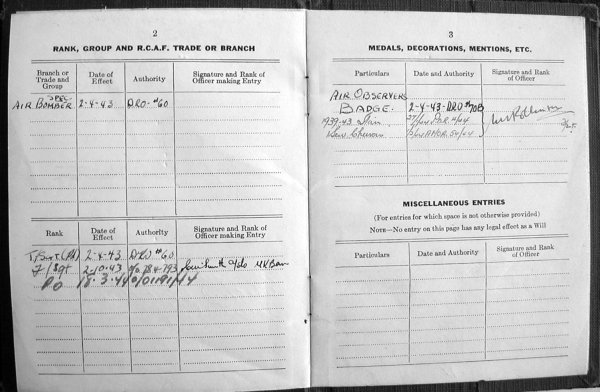 2
RANK, GROUP AND R.C.A.F. TRADE OR BRANCH
Branch or Trade and Group
Date of Effect
Authority
Signature and Rank of Officer making Entry
SPEC.
AIR BOMBER 2-4-43 DRO #60
Rank
Date of Effect
Authority
Signature and Rank of Officer making Entry
2-4-43 DRO #60
F/Sgt 2-10-43
PO 18-3-44
3
MEDALS, DECORATIONS, MENTIONS, ETC.
Particulars
Date and Authority
Signature and Rank of Officer
AIR OBSERVERS
BADGE. 2-4-43-DRO #70B
1939-43 Star
MISCELLANEOUS ENTRIES
(For entries for which space is not otherwise provided)
NOTE—No entry on this page has any legal effect as a Will
Particulars
Date and Authority
Signature and Rank of Officer